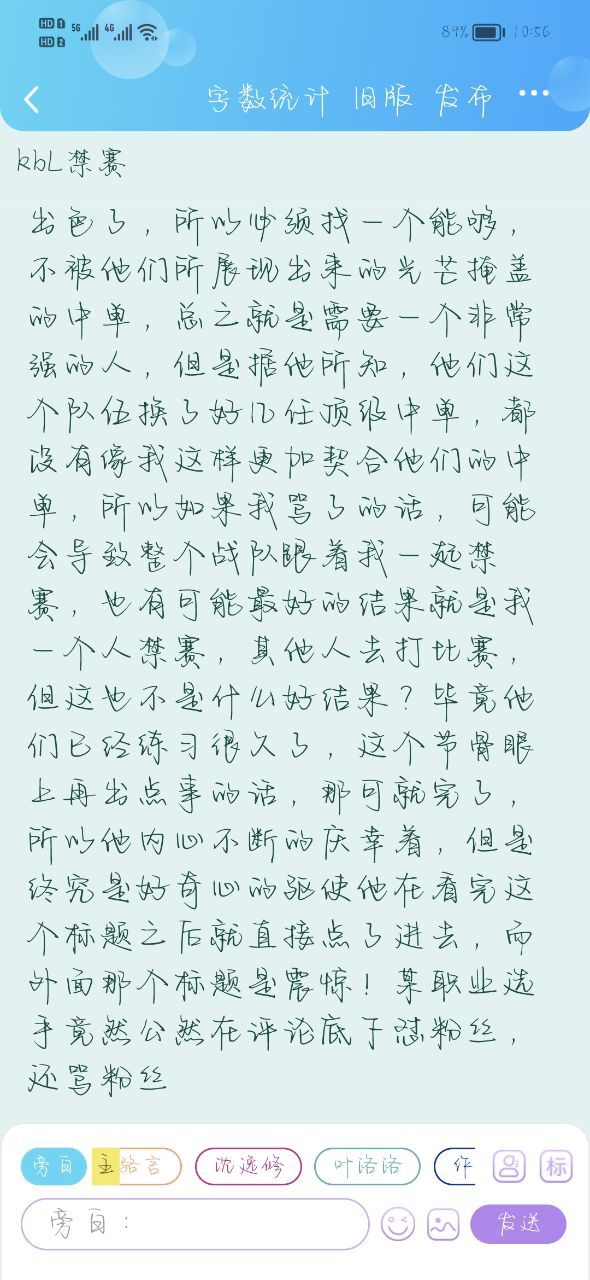 HD 1 5G 4G 89% 10:56
HD 2
字数统计 旧版 发布
kbL禁赛
出色了，所以必须找一个能够，
不被他们所展现出来的光芒掩盖
的中单，总之就是需要一个非常
强的人，但是据他所知，他们这
个队伍换了好几任顶级中单，都
没有像我这样更加契合他们的中
单，所以如果我骂了的话，可能
会导致整个战队跟着我一起禁
赛，也有可能最好的结果就是我
一个人禁赛，其他人去打比赛，
但这也不是什么好结果？毕竟他
们已经练习很久了，这个节骨眼
上再出点事的话，那可就完了，
所以他内心不断的庆幸着，但是
终究是好奇心的驱使他在看完这
个标题之后就直接点了进去，而
外面那个标题是震惊！某职业选
手竟然公然在评论底下怼粉丝，
还骂粉丝
旁白 主 骆言 沈逸修 叶洛洛 作 标
旁白： 发送